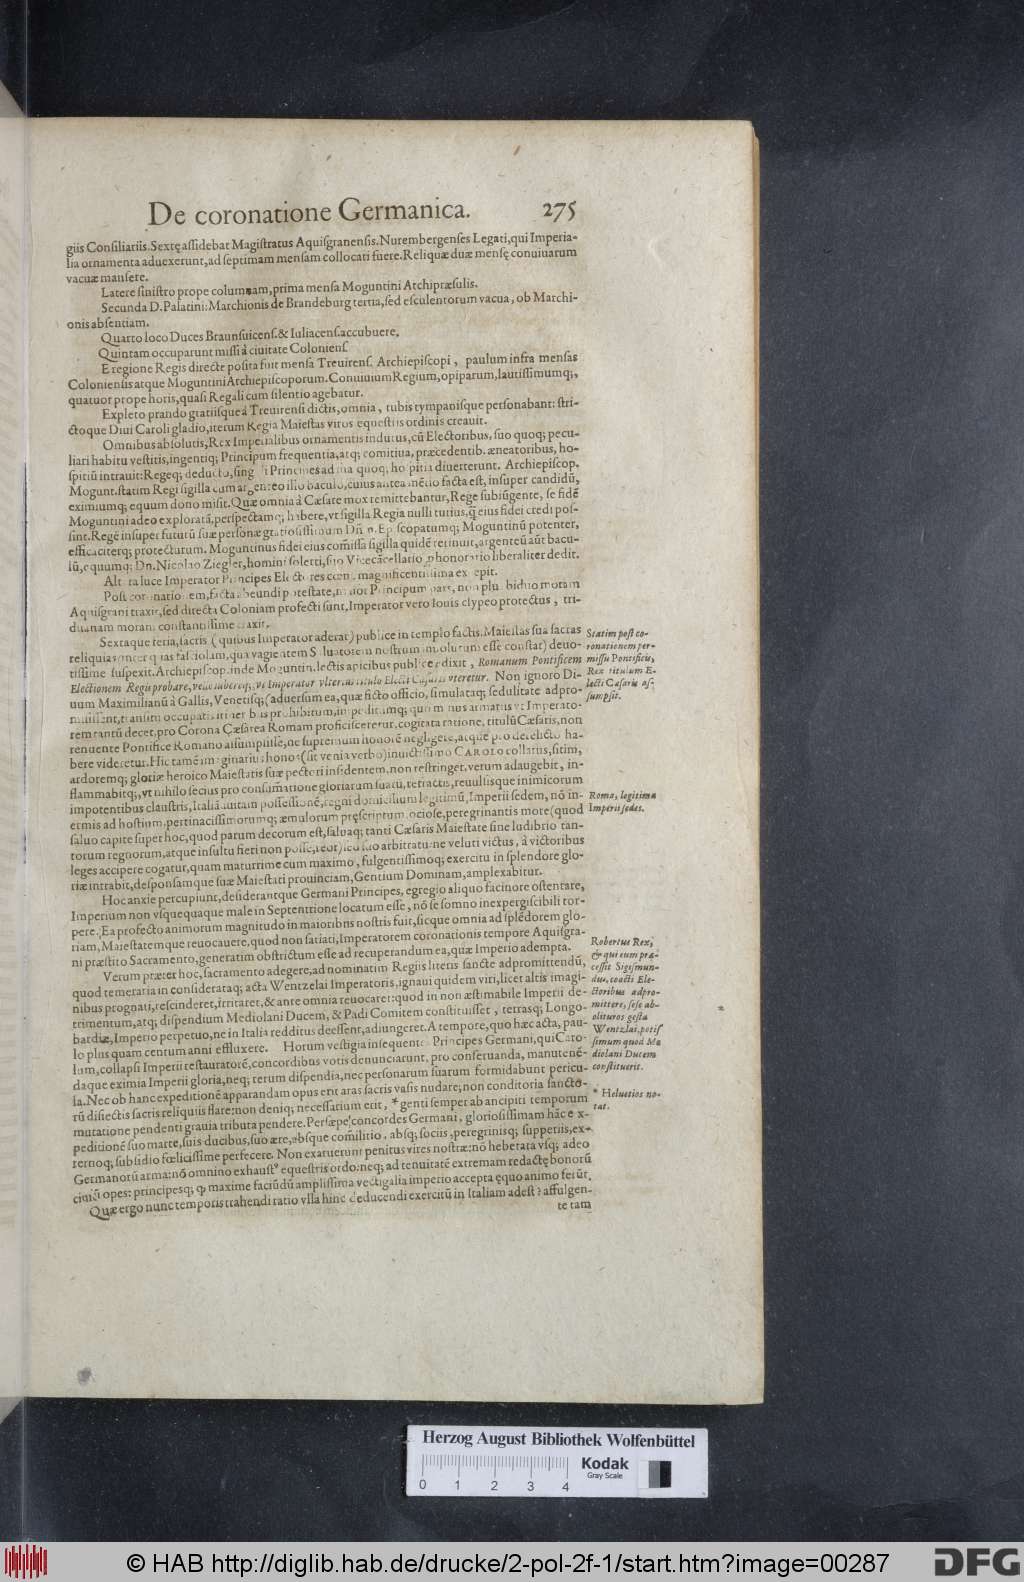 De coronatione Germanica. 275
giis Consiliariis. Sextę assidebat Magistratus Aquisgranensis. Nurembergenses Legati, qui Imperia-
lia ornamenta aduexerunt, ad septimam mensam collocati fuere. Reliquæ duæ mensę conuiuarum
vacuæ mansere.
Latere sinistro prope columnam, prima mensa Moguntini Archipræsulis.
Secunda D. Palatini: Marchionis de Brandeburg tertia, sed esculentorum vacua, ob Marchi-
onis absentiam.
Quarto loco Duces Braunsuicens. & Iuliacens. accubuere.
Quintam occuparunt missi à ciuitate Coloniens.
E regione Regis directe posita fuit mensa Treuirens. Archiepiscopi, paulum infra mensas
Coloniensis atque Moguntini Archiepiscoporum. Conuiuium Regium, opiparum, lautissimumq;,
quatuor prope horis, quasi Regali cum silentio agebatur.
Expleto prando gratiisque à Treuirensi dictis, omnia, tubis tympanisque personabant: stri-
ctoque Diui Caroli gladio, iterum Regia Maiestas viros equestris ordinis creauit.
Omnibus absolutis, Rex Imperialibus ornamentis indutus, cū Electoribus, suo quoq; pecu-
liari habitu vestitis, ingentiq; Principum frequentia, atq; comitiua, præcedentib. æneatoribus, ho-
spitiū intrauit: Regeq; deducto, Principes ad quoq; diuerterunt. Archiepiscop.
Mogunt. statim Regi sigilla cum argenteo illo baculo, cuius antea mētio facta est, insuper candidū,
eximiumq; equum dono misit. Quæ omnia à Cæsare mox remittebantur, Rege subiūgente, se fidē
Moguntini adeo exploratā, perspectamq; habere, vt sigilla Regia nulli tutius, q̄ eius fidei credi pos-
sint. Regē insuper futurū suæ personæ gratiosissimum Dn̄ scopatumq; Moguntinū potenter,
efficaciterq; protecturum. Moguntinus fidei eius com̄issa sigilla quidē retinuit, argenteū aūt bacu-
lū, equumq; Dn. Nicolao Ziegler, homini solerti, suo Vicecācellario honorario liberaliter dedit.
luce Imperator Principes magnificentissima
Post facta abeundi potestate, Principum pars, non biduo moram
Aquisgrani traxit, sed directa Coloniam profecti sunt, Imperator vero Iouis clypeo protectus, tri-
duanam moram constantissime traxit.
Sextaque feria, sacris (quibus Imperator aderat) publice in templo factis. Maiestas sua sacras
reliquias fasciolam, qua vagientem nostrum inuolutum esse constat) deuo-
tissime suspexit. Archiepiscop. inde Moguntin. lectis apicibus publice edixit, Romanum Pontificem
Electionem Regis probare, vt Imperator titulo Electi Cæsaris vteretur. Non ignoro Di-
uum Maximilianū à Gallis, Venetisq; (aduersum ea, quæ ficto officio, simulataq; sedulitate adpro-
misissent, transitu occupatis prohibitum, impeditumq; armatus vt Imperato-
rem tantū decet, pro Corona Cæsarea Romam proficisceretur, cogitata ratione, titulū Cæsaris, non
renuente Pontifice Romano assumpsisse, ne supremum honorē negligere, atque pro derelicto ha-
bere videretur. Hic tamē imaginarius honos (sit venia verbo) inuictissimo CAROLO collatus, sitim,
ardoremq; gloriæ heroico Maiestatis suæ pectori insidentem, non restringet, verum adaugebit, in-
flammabitq;, vt nihilo secius pro consum̄atione gloriarum suarū, retractis, reuulsisque inimicorum
impotentibus claustris, Italiā possessionē, regni domicilium legitimū, Imperii sedem, nō in-
ermis ad hostium, pertinacissimorumq; æmulorum pręscriptum, ociose, peregrinantis more (quod
saluo capite super hoc, quod parum decorum est, saluaq; tanti Cæsaris Maiestate sine ludibrio tan-
torum regnorum, atque insultu fieri non posse, reor) suo arbitratu: ne veluti victus, à victoribus
leges accipere cogatur, quam maturrime cum maximo, fulgentissimoq; exercitu in splendore glo-
riæ intrabit, desponsamque suæ Maiestati prouinciam, Gentium Dominam, amplexabitur.
Hoc anxie percupiunt, desiderantque Germani Principes, egregio aliquo facinore ostentare,
Imperium non vsquequaque male in Septentrione locatum esse, nō se somno inexpergiscibili tor-
pere. Ea profecto animorum magnitudo in maioribus nostris fuit, sicque omnia ad splēdorem glo-
riam, Maiestatemque reuocauere, quod non satiati, Imperatorem coronationis tempore Aquisgra-
ni præstito Sacramento, generatim obstrictum esse ad recuperandum ea, quæ Imperio adempta.
Verum præter hoc, sacramento adegere, ad nominatim Regiis literis sancte adpromittendū,
quod temeraria inconsiderataq; acta Wentzelai Imperatoris, ignaui quidem viri, licet altis imagi-
nibus prognati, rescinderet, irritaret, & ante omnia reuocaret: quod in non æstimabile Imperii de-
trimentum, atq; dispendium Mediolani Ducem, & Padi Comitem constituisset, terrasq; Longo-
bardiæ, Imperio perpetuo, ne in Italia redditus deessent, adiungeret. A tempore, quo hæc acta, pau-
lo plus quam centum anni effluxere. Horum vestigia insequentes Principes Germani, qui Caro-
lum, collapsi Imperii restauratorē, concordibus votis denunciarunt, pro conseruanda, manutenē-
daque eximia Imperii gloria, neq; rerum dispendia, nec personarum suarum formidabunt pericu-
la. Nec ob hanc expeditionē apparandam opus erit aras sacris vasis nudare, non conditoria sancto-
rū disiectis sacris reliquiis flare: non deniq; necessarium erit, * genti semper ab ancipiti temporum
mutatione pendenti grauia tributa pendere. Persæpe concordes Germani, gloriosissimam hāc ex-
peditionē suo marte, suis ducibus, suo ære, absque com̄ilitio, absq; sociis, peregrinisq; suppetiis, ex-
ternoq; subsidio fœlicissime perfecere. Non exaruerunt penitus vires nostræ: nō hebetata vsq; adeo
Germanorū arma: nō omnino exhaustꝰ equestris ordo: neq; ad tenuitatē extremam redactę bonorū
ciuiū opes: principesq; ꝙ maxime faciūdū amplissima vectigalia imperio accepta ęquo animo ferūt.
Quæ ergo nunc temporis trahendi ratio vlla hinc deducendi exercitū in Italiam adest? affulgen-
te tam
Statim post co-
ronationem per-
missu Pontificis,
Rex titulum E-
lecti Cæsaris as-
sumpsit.
Roma, legitima
Imperii sedes.
Robertus Rex,
& qui eum præ-
cessit Sigismun-
dus, coacti Ele-
ctoribus adpro-
mittere, sese ab-
olituros gesta
Wentzlai, potis-
simum quod Me
diolani Ducem
constituerit.
* Heluetios no-
tat.
Herzog August Bibliothek Wolfenbüttel
Kodak
Gray Scale
0 1 2 3 4
© HAB http://diglib.hab.de/drucke/2-pol-2f-1/start.htm?image=00287
DFG